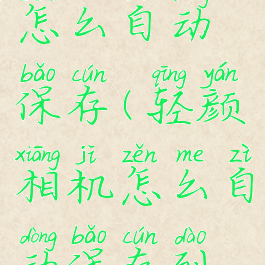 怎么自动
bǎo cún qīng yán
保存(轻颜
xiàng jī zěn me zì
相机怎么自
dòng bǎo cún dào
动保存到